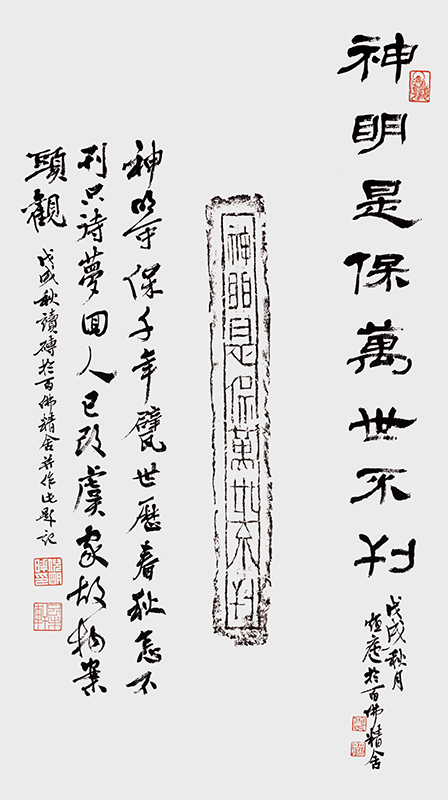 神明是保萬世不刊
戊戌秋月
於百佛精舍
神明是保萬世不刊
神明守保千年甓世歷春秋怎不
刊只詩夢回人已改虞家故物案
頭觀
戊戌秋讀磚於百佛精舍并作此題記